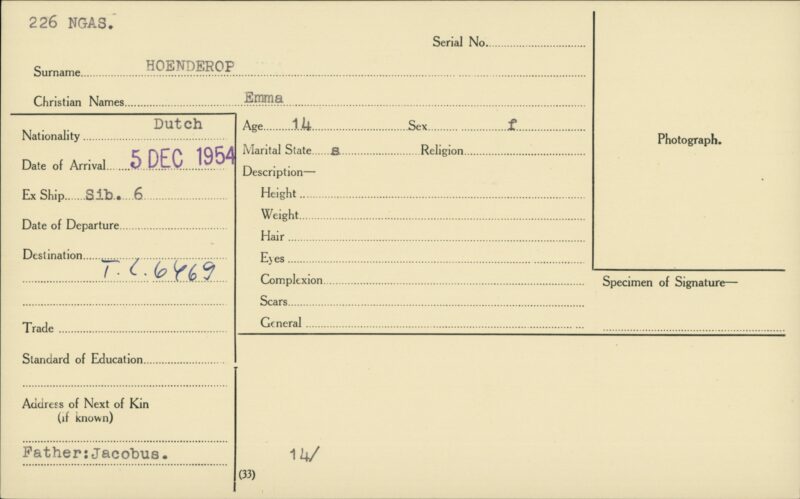 226 NGAS.
Serial No.
Surname HOENDEROP
Christian Names Emma
Nationality Dutch
Age 14 Sex f
Photograph.
Date of Arrival 5 DEC 1954
Marital State s Religion
Description—
Ex Ship Sib. 6
Height
Weight
Date of Departure
Hair
Destination T.C. 6469
Eyes
Complexion
Specimen of Signature—
Scars
Trade
General
Standard of Education
Address of Next of Kin
(if known)
Father:Jacobus.
14/
(33)